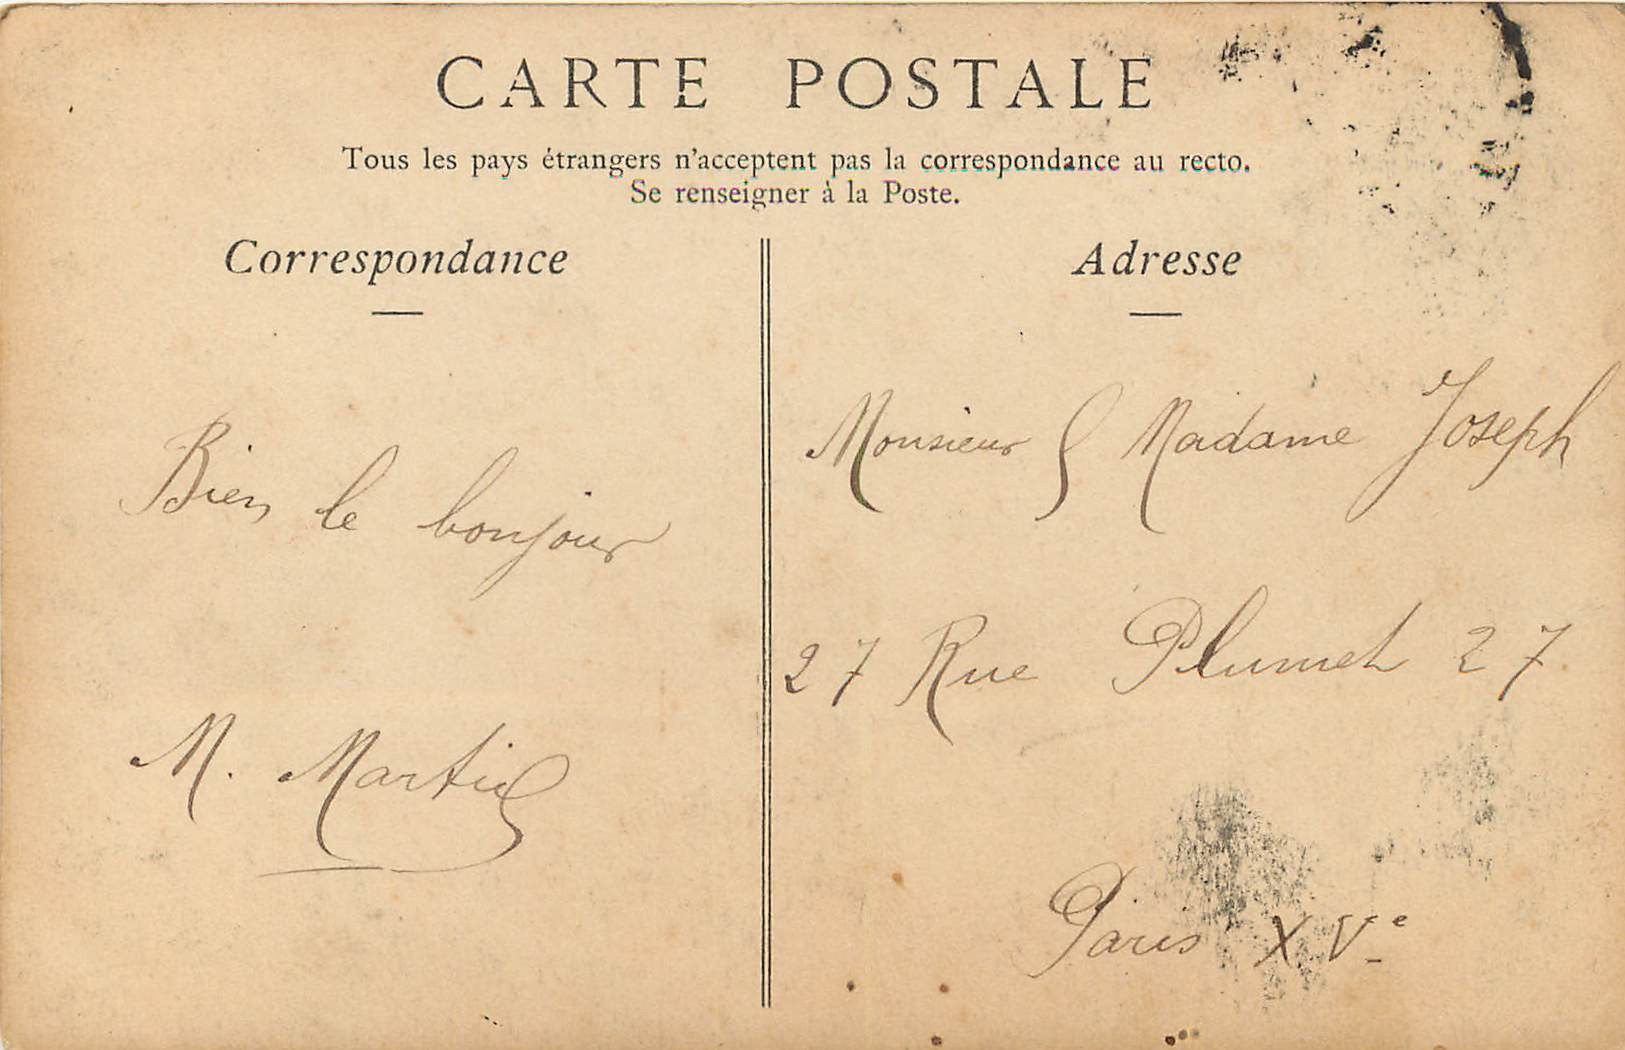 CARTE POSTALE
Tous les pays étrangers n'acceptent pas la correspondance au recto.
Se renseigner à la Poste.
Correspondance
Bien le bonjour
M. Martin
Adresse
Monsieur & Madame Joseph
27 Rue Plumet 27
Paris XVe